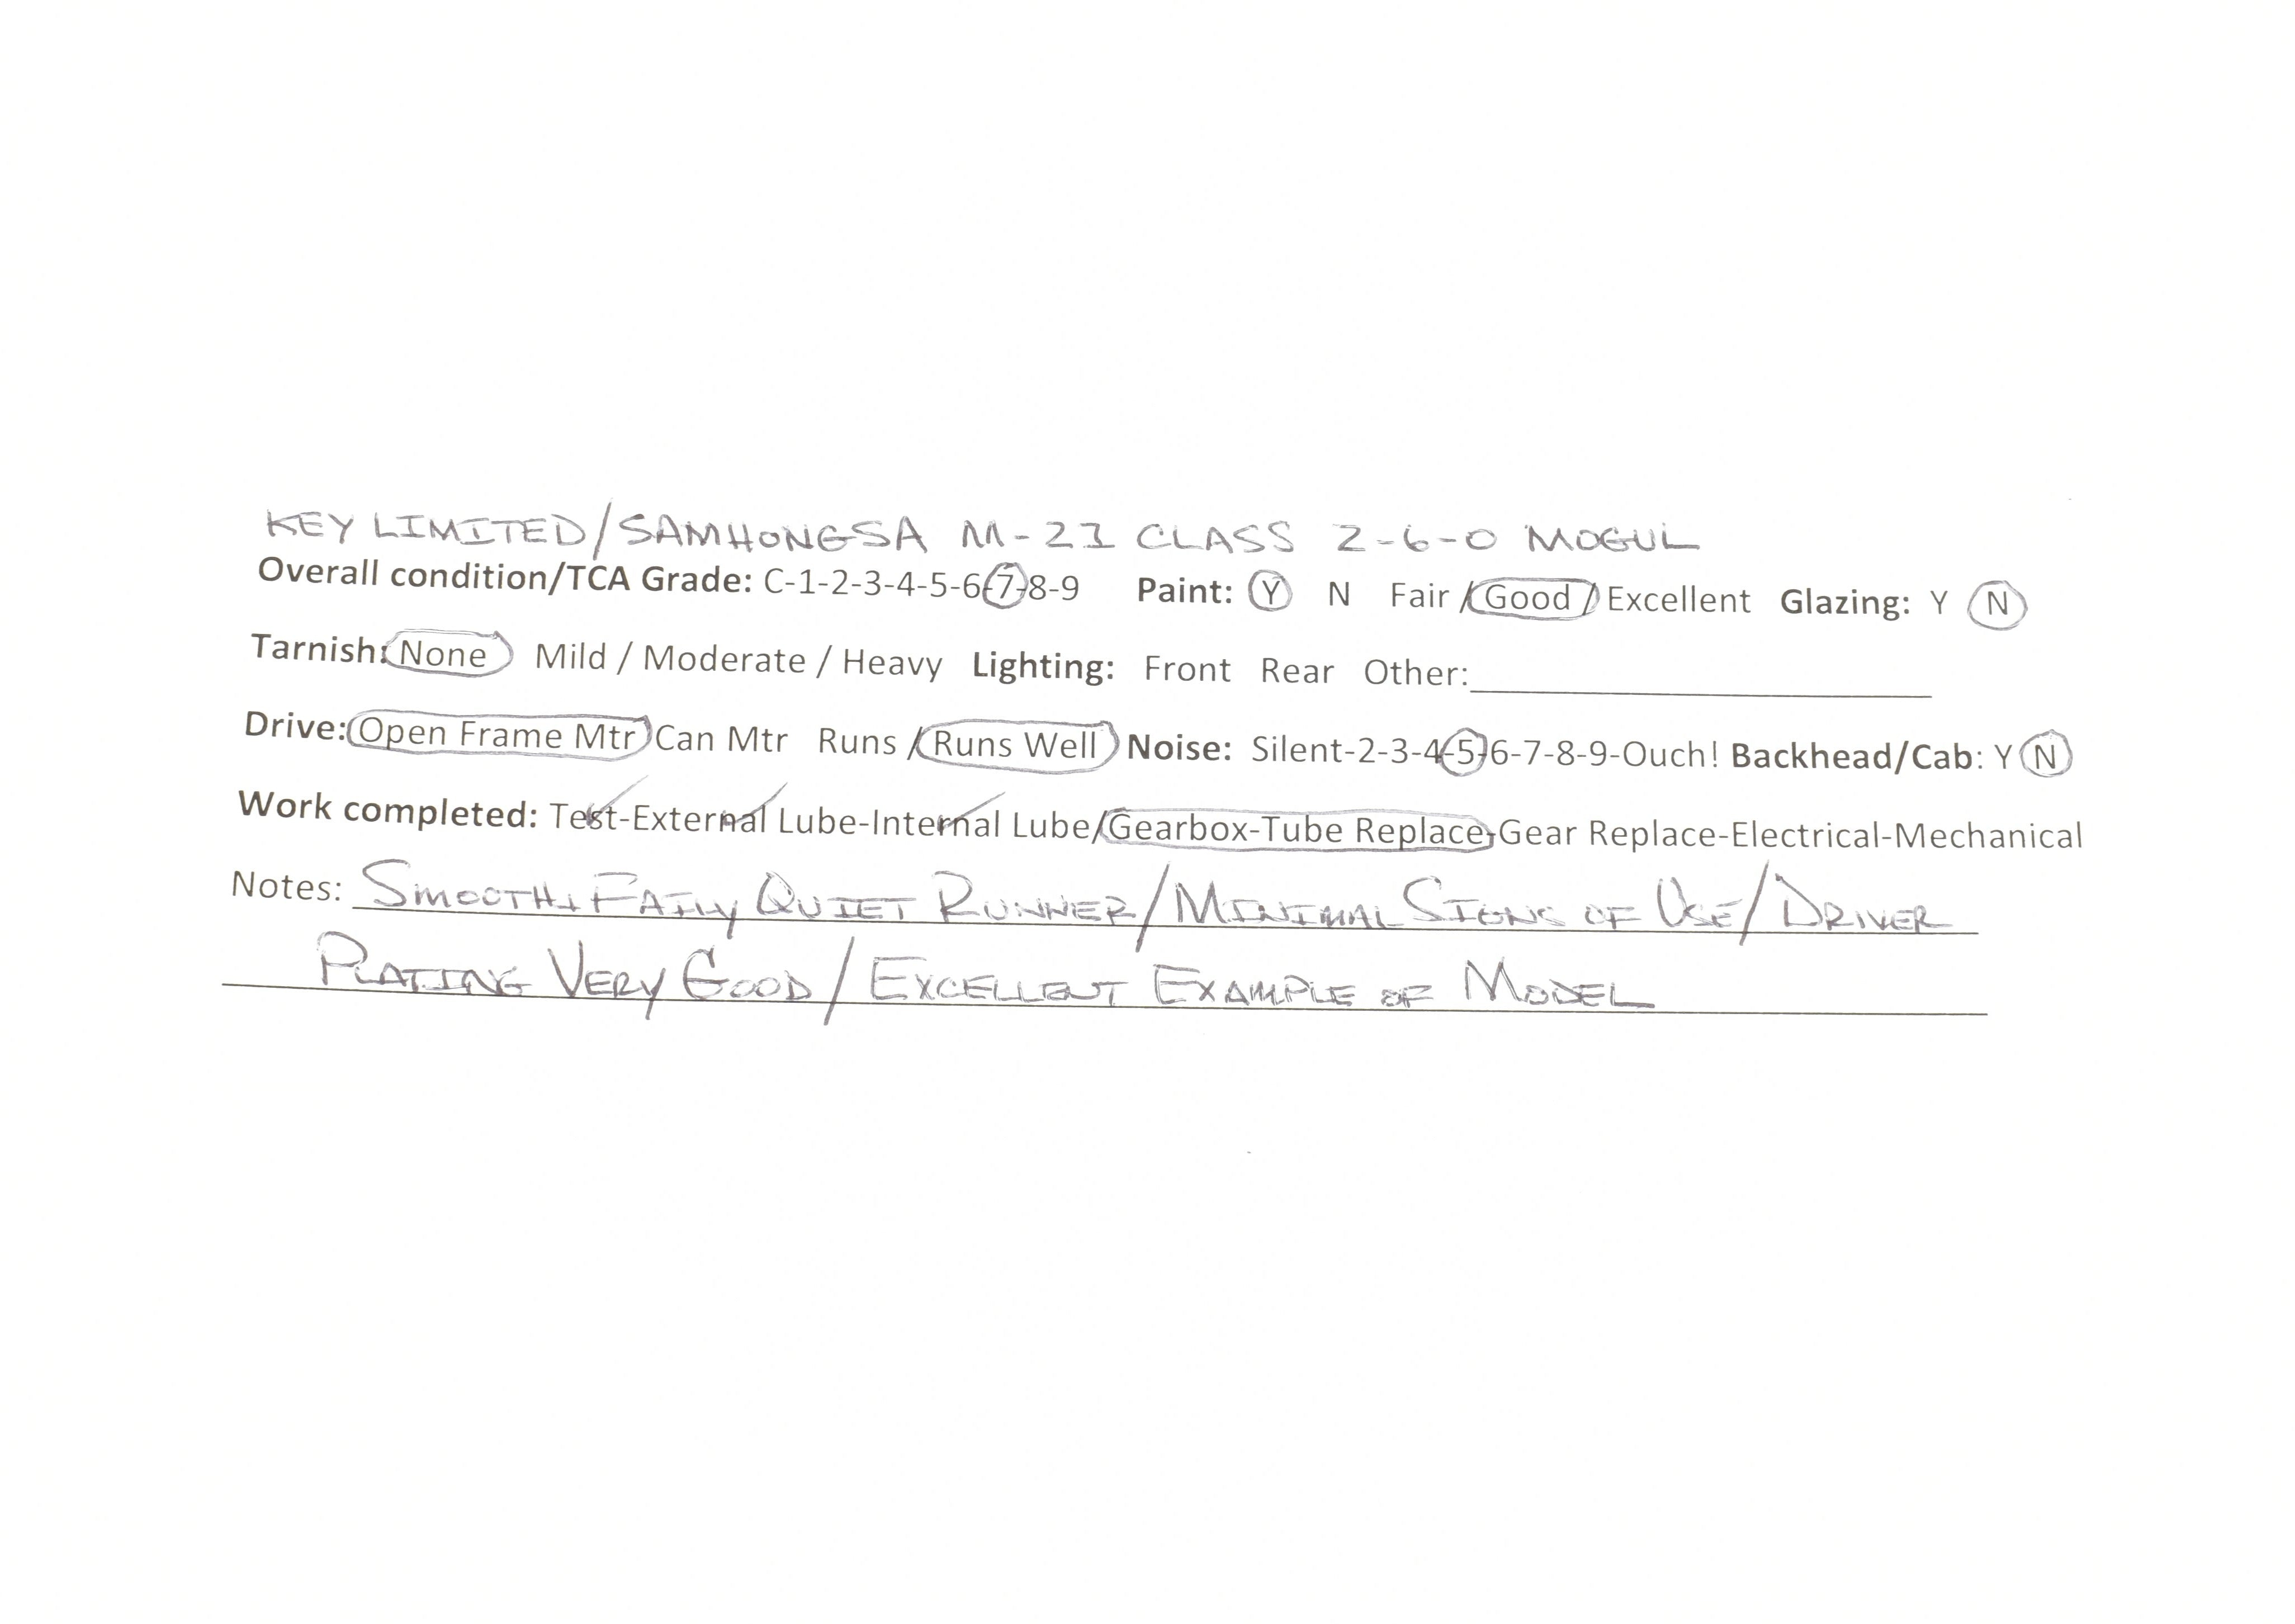 KEY LIMITED/SAMHONGSA M-21 CLASS 2-6-0 MOGUL
Overall condition/TCA Grade: C-1-2-3-4-5-6-7-8-9 Paint: Y N Fair / Good / Excellent Glazing: Y N
Tarnish: None Mild / Moderate / Heavy Lighting: Front Rear Other:
Drive: Open Frame Mtr Can Mtr Runs / Runs Well Noise: Silent-2-3-4-5-6-7-8-9-Ouch! Backhead/Cab: Y N
Work completed: Test-External Lube-Internal Lube/Gearbox-Tube Replace-Gear Replace-Electrical-Mechanical
Notes: SMOOTH + FAILY QUIET RUNNER/MINIMAL SIGNS OF USE/DRIVER
PLATING VERY GOOD/EXCELLENT EXAMPLE OF MODEL